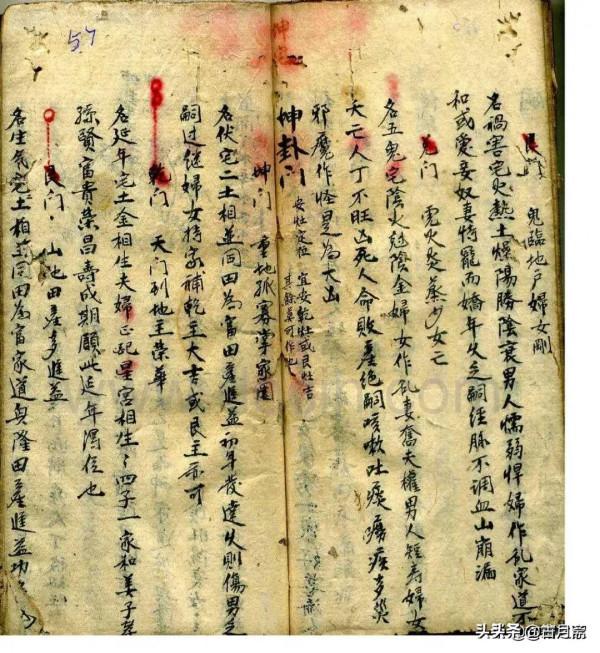 57
艮門 鬼臨地戶婦女剛
名禍害宅火熱土燥陽勝陰衰男人懦弱悍婦作乱家道不
和或愛妾奴妻恃寵而嬌年久乏嗣經脉不調血山崩漏
兌门 電火炎蒸少女亡
名五鬼宅陰火尅陰金婦女作乱妻奪夫權男人短寿婦女
夭亡人丁不旺凶死人命敗產絕嗣咳嗽吐痰癆疾多災
邪魔作怪是為大凶
坤卦门 安灶定位 宜安乾灶或艮灶吉
其餘莫可作也
坤门 重地孤寡掌家園
名伏宅二土相並同田為富田產進益初年發達久則傷男乏
嗣过继婦女持家補乾主大吉或艮主亦可
乾门 天门到地主榮華
名延年宅土金相生夫婦正配星宮相生々四子一家和美子孝
孫賢富貴榮昌壽或期頤此延年得位也
艮门 山地田產多進益
名生氣宅土相並同田為富家道興隆田產進益功
头条@古月斋